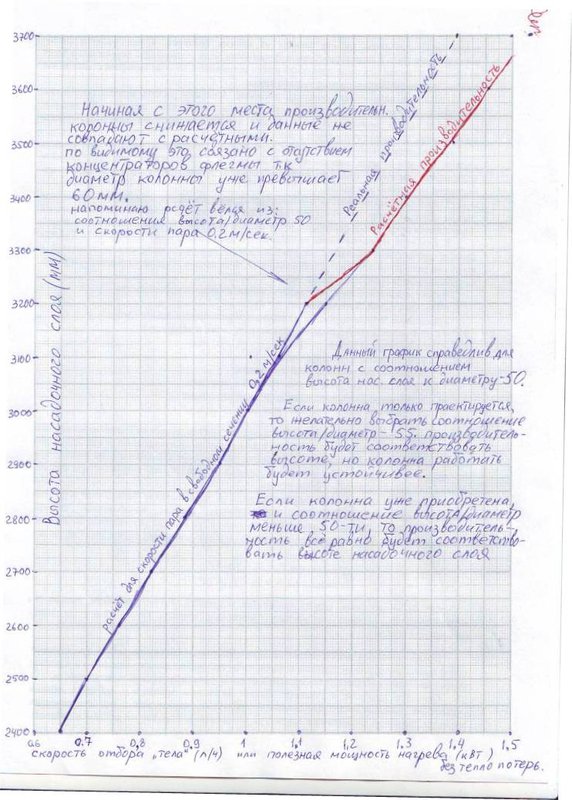 3700
3600
3500
3400
3300
3200
3100
3000
2900
2800
2700
2600
2500
2400
Высота насадочного слоя (мм)
Начиная с этого места производительн.
колонны снижается и данные не
совпадают с расчётными.
по видимому это связано с отсутствием
концентраторов флегмы т.к
диаметр колонны уже превышает
60мм.
напоминаю расчёт велся из:
соотношения высота/диаметр 50
и скорости пара 0.2 м/сек.
Реальная производительность
Расчётная производительность
расчёт для скорости пара в свободном сечении 0,2 м/сек
Данный график справедлив для
колонн с соотношением
высота нас. слоя к диаметру-50.
Если колонна только проектируется,
то желательно выбрать соотношение
высота/диаметр - 55. производитель-
ность будет соответствовать
высоте, но колонна работать
будет устойчивее.
Если колонна уже приобретена,
и соотношение высота/диаметр
меньше, 50-ти, то производитель-
ность всё равно будет соответство-
вать высоте насадочного слоя
0.6 0.7 0,8 0,9 1 1,1 1,2 1,3 1,4 1,5
скорость отбора „тела" (л/ч) или полезная мощность нагрева (кВт)
без тепло потерь.